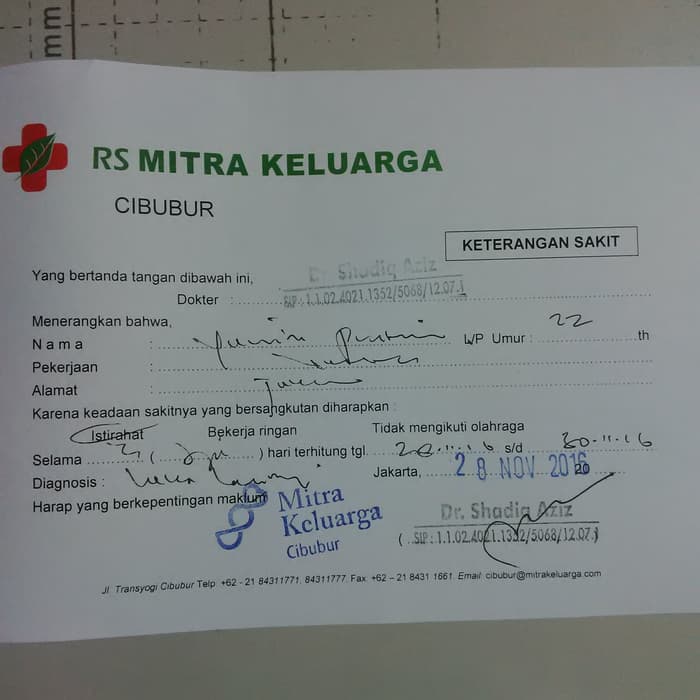 mm
RS MITRA KELUARGA
CIBUBUR
KETERANGAN SAKIT
Yang bertanda tangan dibawah ini,
Dr. Shadiq Aziz
Dokter : SIP : 1.1.02.4021.1352/5068/12.07.1
Menerangkan bahwa,
Nama : L/P Umur : 22 th
Pekerjaan :
Alamat :
Karena keadaan sakitnya yang bersangkutan diharapkan :
Istirahat Bekerja ringan Tidak mengikuti olahraga
Selama 3 ( ) hari terhitung tgl. 28-11-16 s/d 30-11-16
Diagnosis : Jakarta, 28 NOV 2016 20
Harap yang berkepentingan maklum
Mitra
Keluarga
Cibubur
Dr. Shadiq Aziz
( SIP : 1.1.02.4021.1352/5068/12.07.)
Jl. Transyogi Cibubur Telp. +62 - 21 84311771, 84311777, Fax. +62 – 21 8431 1661. Email: cibubur@mitrakeluarga.com